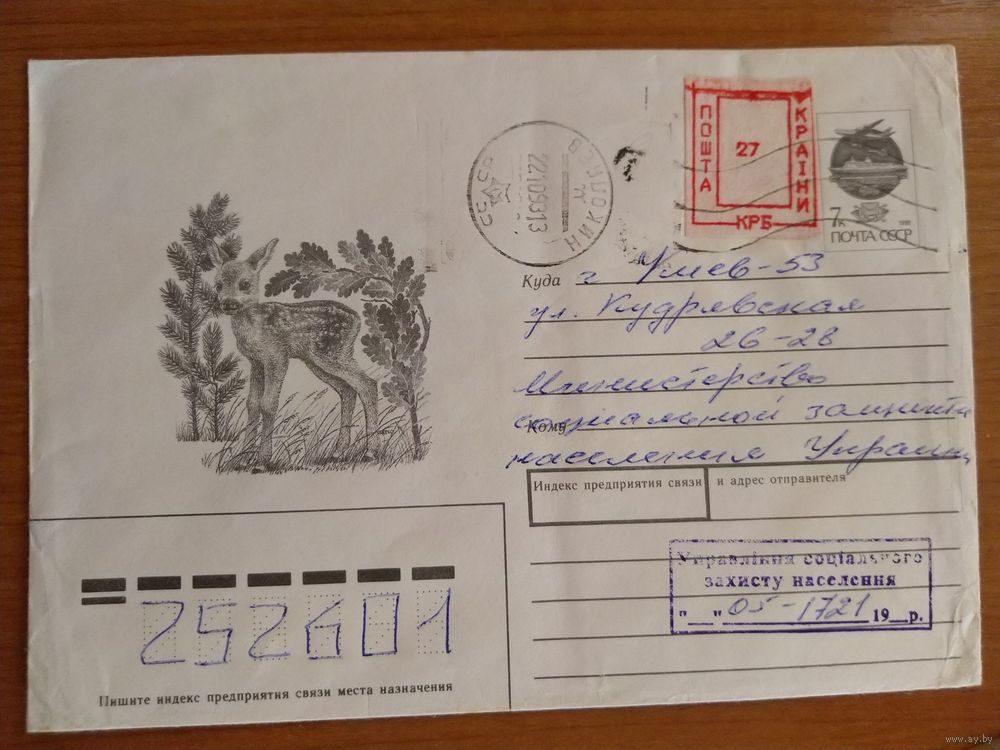 ПОШТА
УКРАЇНИ
27
КРБ
7к
ПОЧТА СССР
СССР
2210931 3
НИКОЛАЕВ
Куда г Киев-53
ул. Кудрявская
26-28
Министерство
социальной защиты
Кому
населения Украины
Индекс предприятия связи и адрес отправителя
Управління соціального
захисту населення
"__" 05-1721 19__р.
252601
Пишите индекс предприятия связи места назначения
www.ay.by